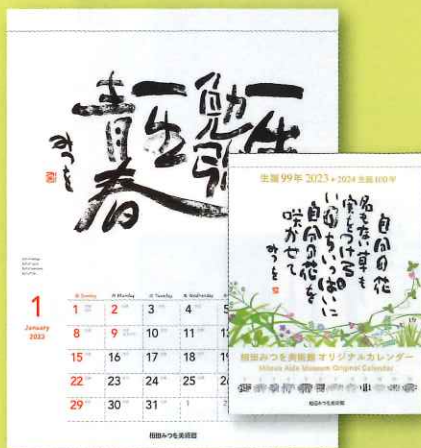 一生
勉強
一生
青春
みつを
1
January
2023
日 Sunday 月 Monday 火 Tuesday 水 Wednesday
1 2 3 4
8 9 10 11
15 16 17 18
22 23 24 25
29 30 31
相田みつを美術館
生誕99年 2023 ▸ 2024 生誕100年
自分の花
名もない草も
実をつける
いのちいっぱいに
自分の花を
咲かせて
みつを
相田みつを美術館 オリジナルカレンダー
Mitsuo Aida Museum Original Calendar
相田みつを美術館